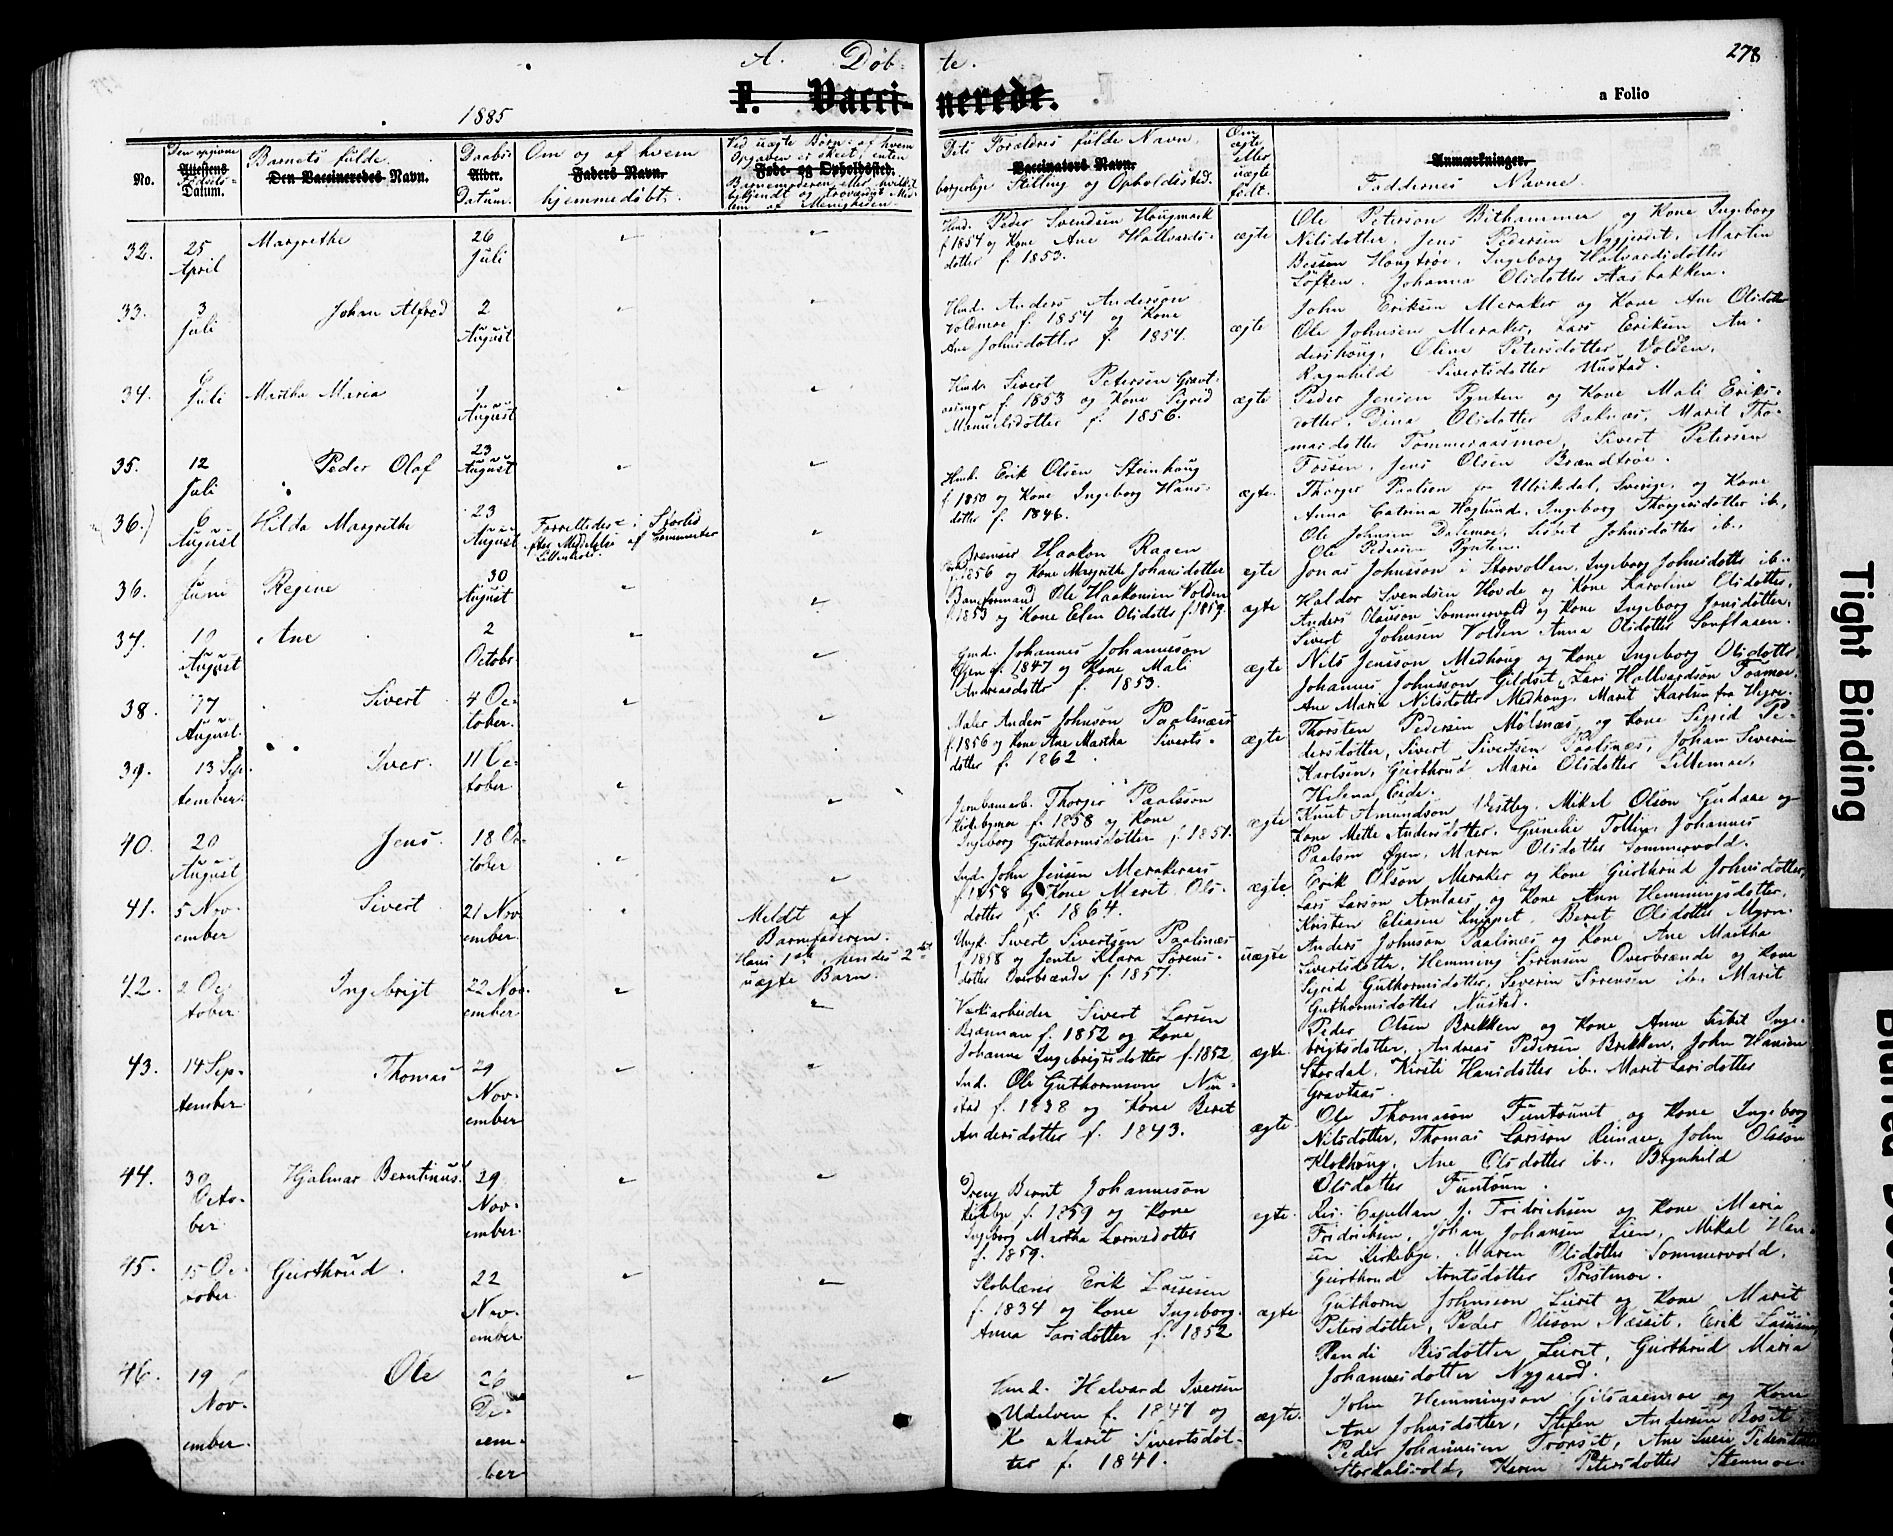 A. Døb- te.
278
F. Vacci- nerede.
a Folio
1885
No.
Den opgivne
Attestens
Fødsels-
Datum.
Barnets fulde
Den Vaccineredes Navn.
Daabs-
Alder.
Datum.
Om og af hvem
Faders Navn.
hjemmedøbt.
Ved uægte Børn: af hvem
Opgaven er skeet, enten
Føde- og Opholdssted.
Barnemoderen eller hvilket
bekjendt og troværdigt Med-
lem af Menigheden.
Dets Forældres fulde Navn,
Vaccinators Navn.
borgerlige Stilling og Opholdssted.
Om
ægte
eller
uægte
født.
Anmærkninger.
Faddernes Navne
32.
25
April
Margrethe
26
Juli
Hmd. Peder Svendsen Hougmark
f. 1854 og Kone Ane Hallvards-
dotter f. 1853.
ægte
Ole Peterson Bithammer og Kone Ingeborg
Nilsdotter, Jens Pedersen Nygjerdet, Martin
Bessen Hougtrøe, Ingeborg Halvardsdotter
Løften, Johanna Olsdotter Aasbakken.
33.
3
Juli
Johan Alfred
2
August
Hmd. Anders Anderson
Voldmoe f. 1854 og Kone
Ane Johnsdotter f. 1854.
ægte
John Eriksen Meraker og Kone Ane Olsdotter
Ole Johnsen Meraker, Lars Eriksen An-
dershoug, Oline Petersdotter Volden,
Ragnhild Sivertsdotter Nustad.
34.
Juli
Martha Maria
9
August
Hmd. Sivert Petersen Gravt-
f. 1853 og Kone Sigrid
Manuelsdotter f. 1856.
ægte
Peder Jensen Pynten og Kone Mali Eriks-
dotter, Dina Olsdotter Baknæs, Marit Tho-
masdotter Tømmeraasmoe, Sivert Petersen
Fossen, Jens Olsen Brændtrøe.
35.
12
Juli
Peder Olaf
23
August
Hmd. Erik Olsen Steinhoug
f. 1850 og Kone Ingeborg Hans-
dotter f. 1846.
ægte.
Thorger Paalsen fra Ulrikedal, Sverige, og Kone
Anna Catrina Høglund, Ingeborg Thorgersdotter ib.,
Ole Johnsen Dalemoe, Sisset Johnsdotter ib.,
Ole Pedersen Pynten.
(36.)
6
August
Hilda Margrithe
23
August
Forrettedes i Storlid
efter Meddelelse af Kommenter
Lillenhold.
Bremser Haakon Raaen
f. 1856 og Kone Margrithe Johansdotter
ægte
Jonas Johnsson i Storvollen, Ingeborg Johnsdotter ib.
36.
1
Juni
Regine
30
August
Baneformand Ole Haakonsen Volden
f. 1853 og Kone Elen Olsdotter f. 1859.
ægte
Haldor Svendsen Hovde og Kone Karoline Olsdotter,
Anders Olausson Sommervold og Kone Ingeborg Jonsdotter,
Sivert Johnsen Volden, Anna Olsdotter Sonflaaen.
37.
10
August
Ane
2
Octobr.
Gmd. Johannes Johannesson
Øien f. 1847 og Kone Mali
Andreasdotter f. 1853.
ægte
Nils Jensson Medhoug og Kone Ingeborg Olsdotter
Johannes Johnsson Gildset, Lars Hallvardson Fosmoe,
Ane Maria Nilsdotter Medhoug, Marit Karlsen fra Hegre.
38.
17
August.
Sivert
4 Oc-
tober.
Maler Anders Johnson Paalsnæss
f. 1856 og Kone Ane Martha Siverts-
dotter f. 1862.
ægte
Thorsten Pedersen Molsnæs, og Kone Sigrid Pe-
dersdotter, Sivert Sivertsen Paalsnæs, Johan Severin
Karlsen, Gurthrud Maria Olsdotter Lillemoe,
Helena Eide.
39.
13 Sep-
tember.
Iver.
11 Oc-
tober.
Jernbanearb. Thorger Paalsson
Kirkebymoe f. 1858 og Kone
Ingeborg Guthormsdotter f. 1851.
ægte
Knut Amundson Vestby, Mikel Olson Gudaae og
Kone Mette Andersdotter, Gunelie Tollin, Johannes
Paalson Øyen, Maren Olsdotter Sommervold.
40.
20
August
Jens.
18 Oc-
tober
Ind. John Jensen Merakeraas
f. 1858 og Kone Marit Ols-
dotter f. 1864.
ægte
Erik Olson Meraker og Kone Gurthrud Johnsdotter,
Lars Larson Arntaas, og Kone Ann Hemmingsdotter,
Kristen Eliasen Knippet, Beret Olsdotter Myrn.
41.
5 Nov-
ember
Sivert
21 Nov
ember.
Meldt af
Barnefaderen.
Hans 1ste, hendes 2det
uægte Barn.
Ungk. Sivert Sivertsen Paalsnæs
f. 1858 og Jente Klara Sørens-
dotter Overbrænde f. 1857.
uægte
Anders Johnson Paalsnæs og Kone Ane Martha
Sivertsdotter, Hemming Sørensen Overbrænde og Kone
Sigrid Guthormsdotter, Severin Sørensen ib., Marit
Guthormsdotter Nustad.
42.
2 Oc-
tober.
Ingebrigt
22 Nov.
ember
Værkarbeider Sivert Larsen
Brænnan f. 1852 og Kone
Johanne Ingebrigtsdotter f. 1852
ægte.
Peder Olsen Brekken og Kone Anne Sisbet Inge-
brigtsdotter, Andreas Pedersen Brekken, John Hansen
Stordal, Kirsti Hansdotter ib., Marit Larsdotter
Gravtaas.
43.
14 Sep-
tember.
Thomas
29
Nov-
ember
Ind. Ole Guthormson Nu-
stad f. 1838 og Kone Beret
Andersdotter f. 1843.
ægte.
Ole Thomason Funtaunet og Kone Ingeborg
Nilsdotter, Thomas Larsson Reinaae, John Olsson
Klokhoug, Ane Olsdotter ib., Brynhild
Olsdotter Funtaun.
44.
30
Octo-
ber.
Hjalmar Berntinus.
29
Nov-
ember.
Dreng Bernt Johanneson
Kirkebye f. 1859 og Kone
Ingeborg Martha Larnsdotter
f. 1859.
egte.
Res. Capellan J. Fridrichsen og Kone Maria
Fridrichsen, Johan Johansen Lien, Mikal Han-
sen Kirkebye, Maren Olsdotter Sommervold,
Gurthrud Arntsdotter Prestmoe.
45.
15 Oc-
tober.
Gurthrud.
22
Nov-
ember
Skoblærer Erik Lassesen
f. 1834 og Kone Ingeborg
Anna Larsdotter f. 1852
ægte.
Guthorm Johnson Leiret og Kone Marit
Petersdotter, Peder Olsson Næsset, Erik Lassesen
Randi Besdotter Leiret, Gurthrud Maria
Johannesdotter Nygaard.
46.
19
Nov-
ember.
Ole
26
De-
cem-
ber
Hmd. Halvard Iversen
Udelven f. 1847 og
K Marit Sivertsdot-
ter f. 1841.
ægte.
John Hemmingson Gilsaaemoe og Kone
Ane Johnsdotter, Stefen Andersen Roset
Peder Johannesen Tronset, Ane Pedersdotter
Stordalsvold, Karen Petersdotter Stenmoe.
Tight Binding